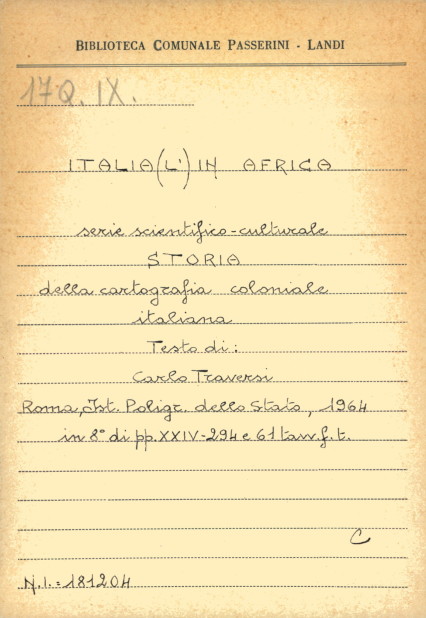 BIBLIOTECA COMUNALE PASSERINI - LANDI
17Q. IX.
ITALIA (L') IN AFRICA
serie scientifico-culturale
STORIA
della cartografia coloniale
italiana
Testo di:
Carlo Traversi
Roma, Ist. Poligr. dello Stato, 1964
in 8° di pp. XXIV-294 e 61 tav. f. t.
C
N.I.=181204